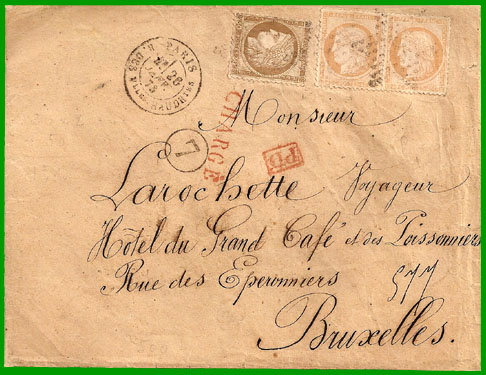 PARIS
CHARGÉ
7
PD
Monsieur
Larochette Voyageur
Hôtel du Grand Café et des Poissonniers
Rue des Eperonniers
577
Bruxelles.